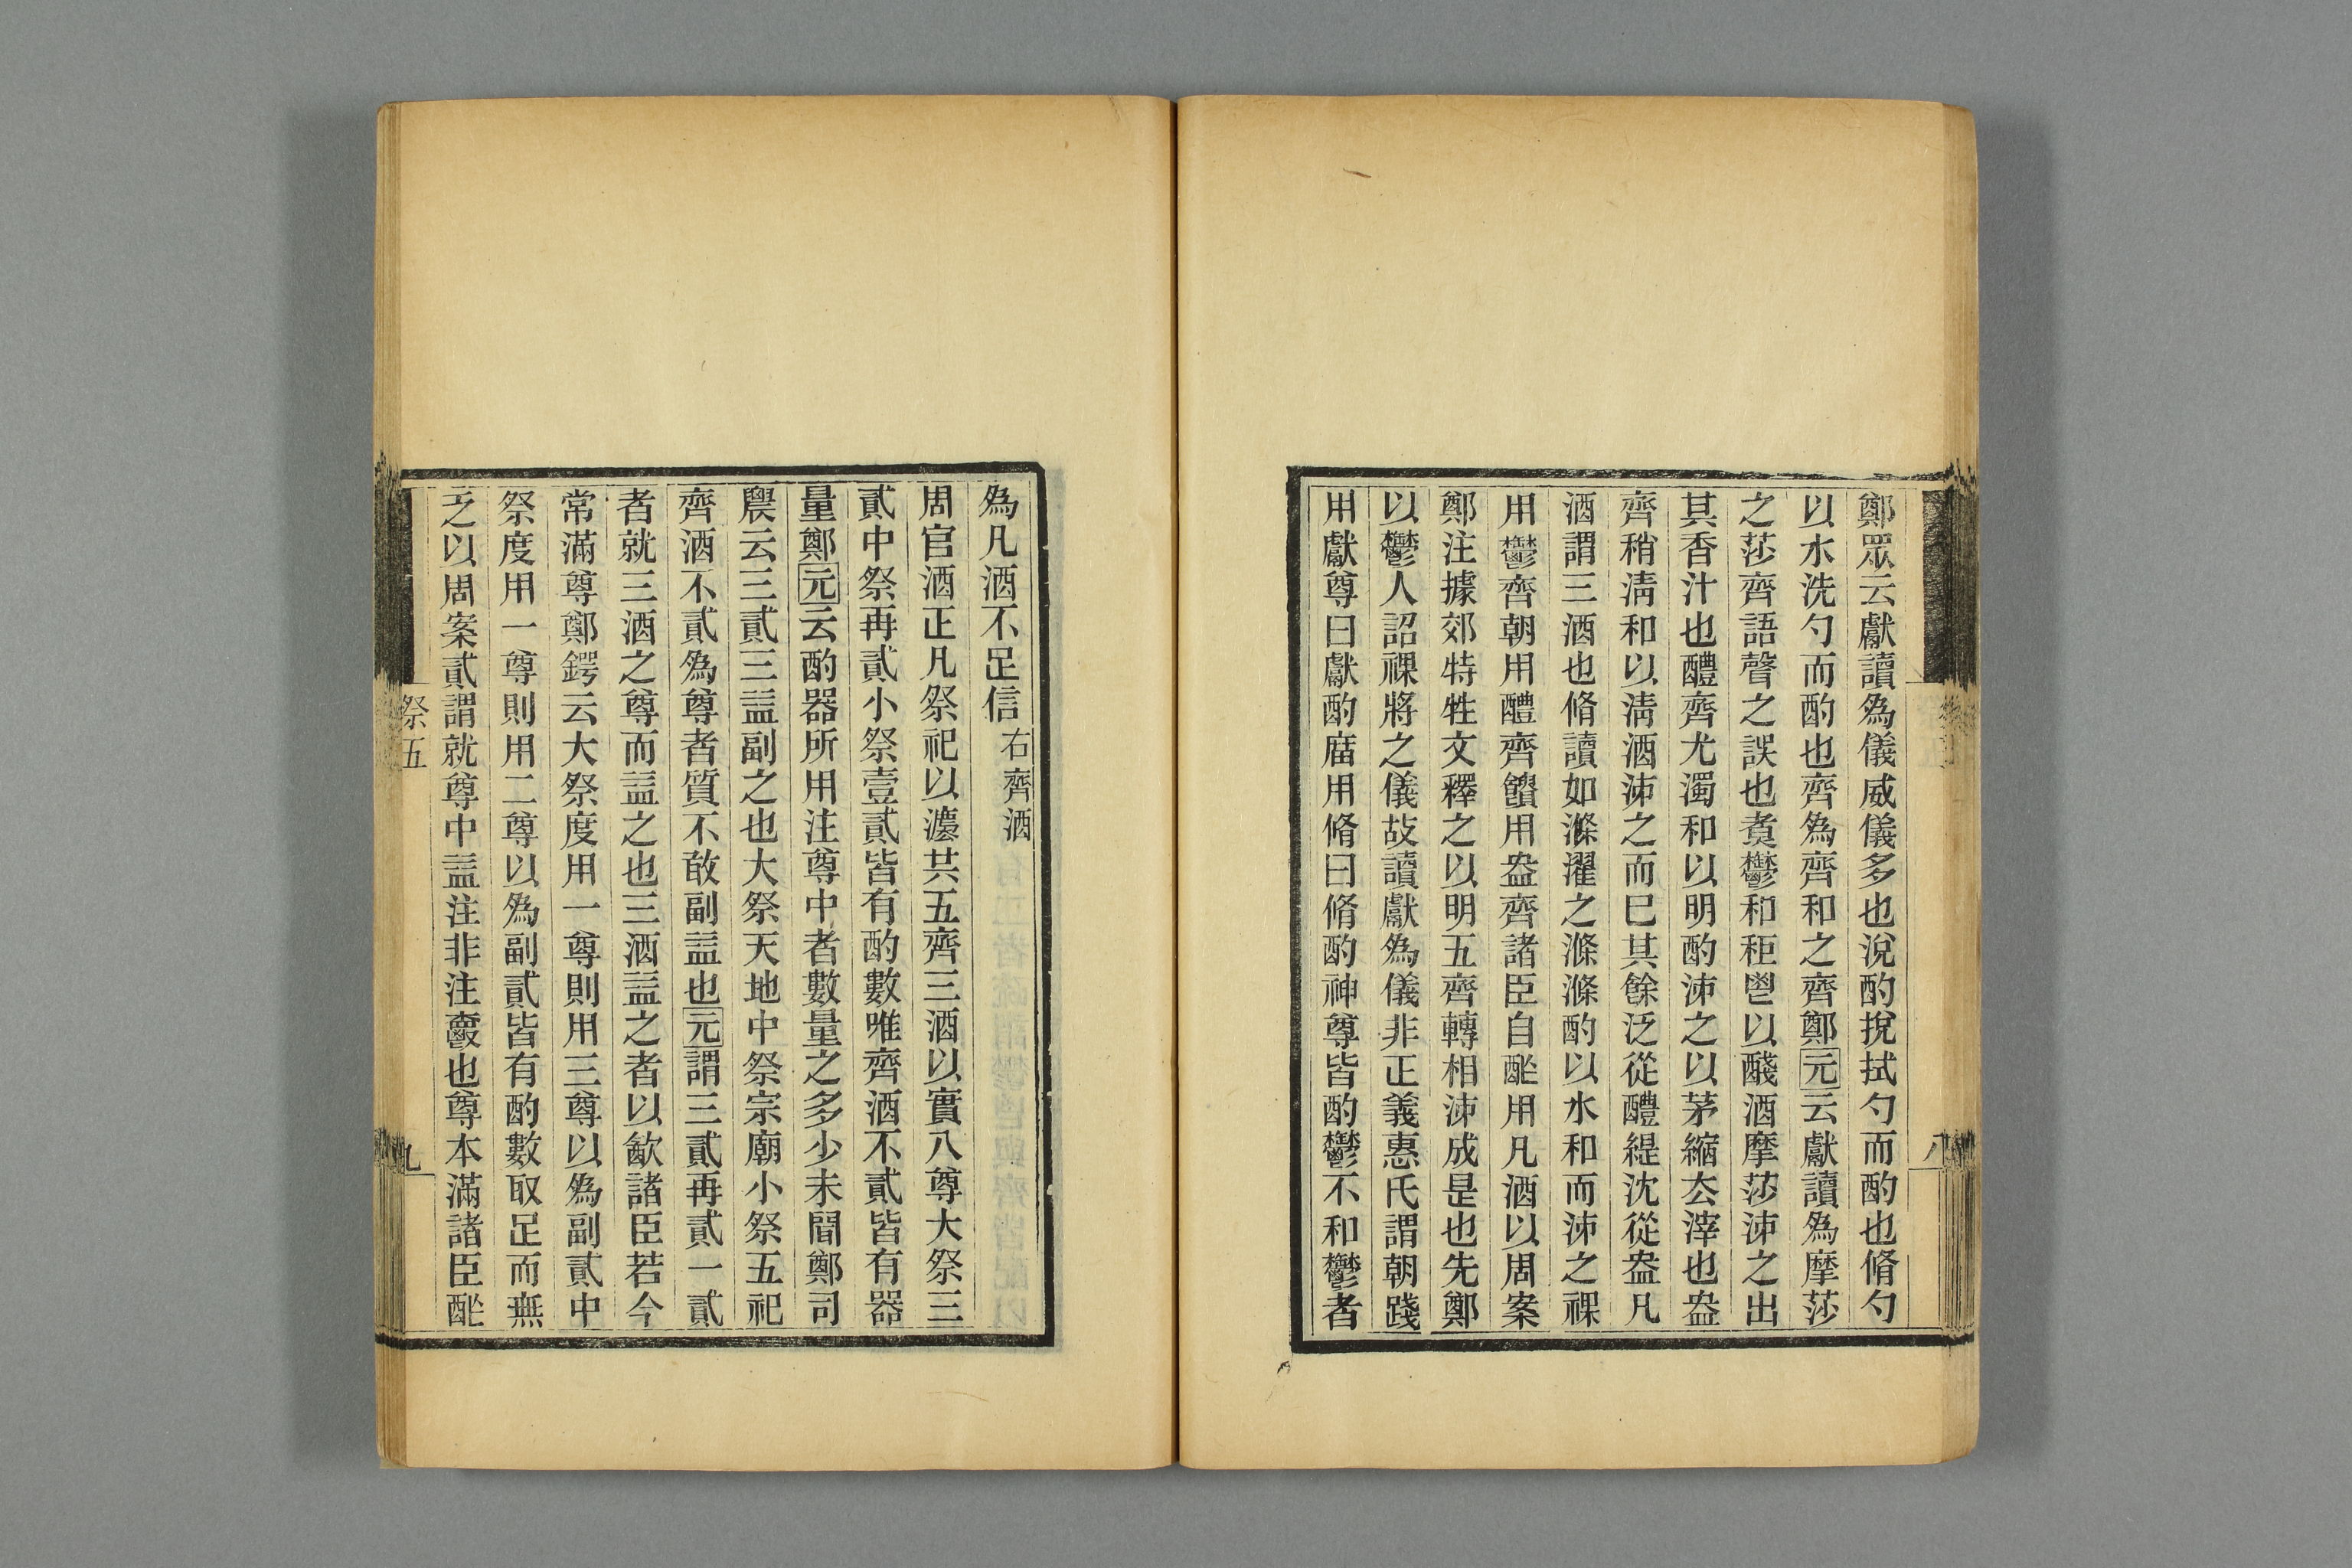 鄭眾云獻讀爲儀威儀多也涗酌挩拭勺而酌也脩勺
以水洗勺而酌也齊爲齊和之齊鄭元云獻讀爲摩莎
之莎齊語聲之誤也煑鬱和秬鬯以醆酒摩莎泲之出
其香汁也醴齊尤濁和以明酌泲之以茅縮去滓也盎
齊稍淸和以淸酒泲之而巳其餘泛從醴緹沈從盎凡
酒謂三酒也脩讀如滌濯之滌滌酌以水和而泲之祼
用鬱齊朝用醴齊饋用盎齊諸臣自酢用凡酒以周案
鄭注據郊特牲文釋之以明五齊轉相泲成是也先鄭
以鬱人詔祼將之儀故讀獻爲儀非正義惠氏謂朝踐
用獻尊曰獻酌廟用脩曰脩酌神尊皆酌鬱不和鬱者
八
爲凡酒不足信 右齊酒
周官酒正凡祭祀以灋共五齊三酒以實八尊大祭三
貳中祭再貳小祭壹貳皆有酌數唯齊酒不貳皆有器
量鄭元云酌器所用注尊中者數量之多少未聞鄭司
農云三貳三益副之也大祭天地中祭宗廟小祭五祀
齊酒不貳爲尊者質不敢副益也元謂三貳再貳一貳
者就三酒之尊而益之也三酒益之者以飮諸臣若今
常滿尊鄭鍔云大祭度用一尊則用三尊以爲副貳中
祭度用一尊則用二尊以爲副貳皆有酌數取足而無
乏以周案貳謂就尊中益注非注虆也尊本滿諸臣酢
祭五
九